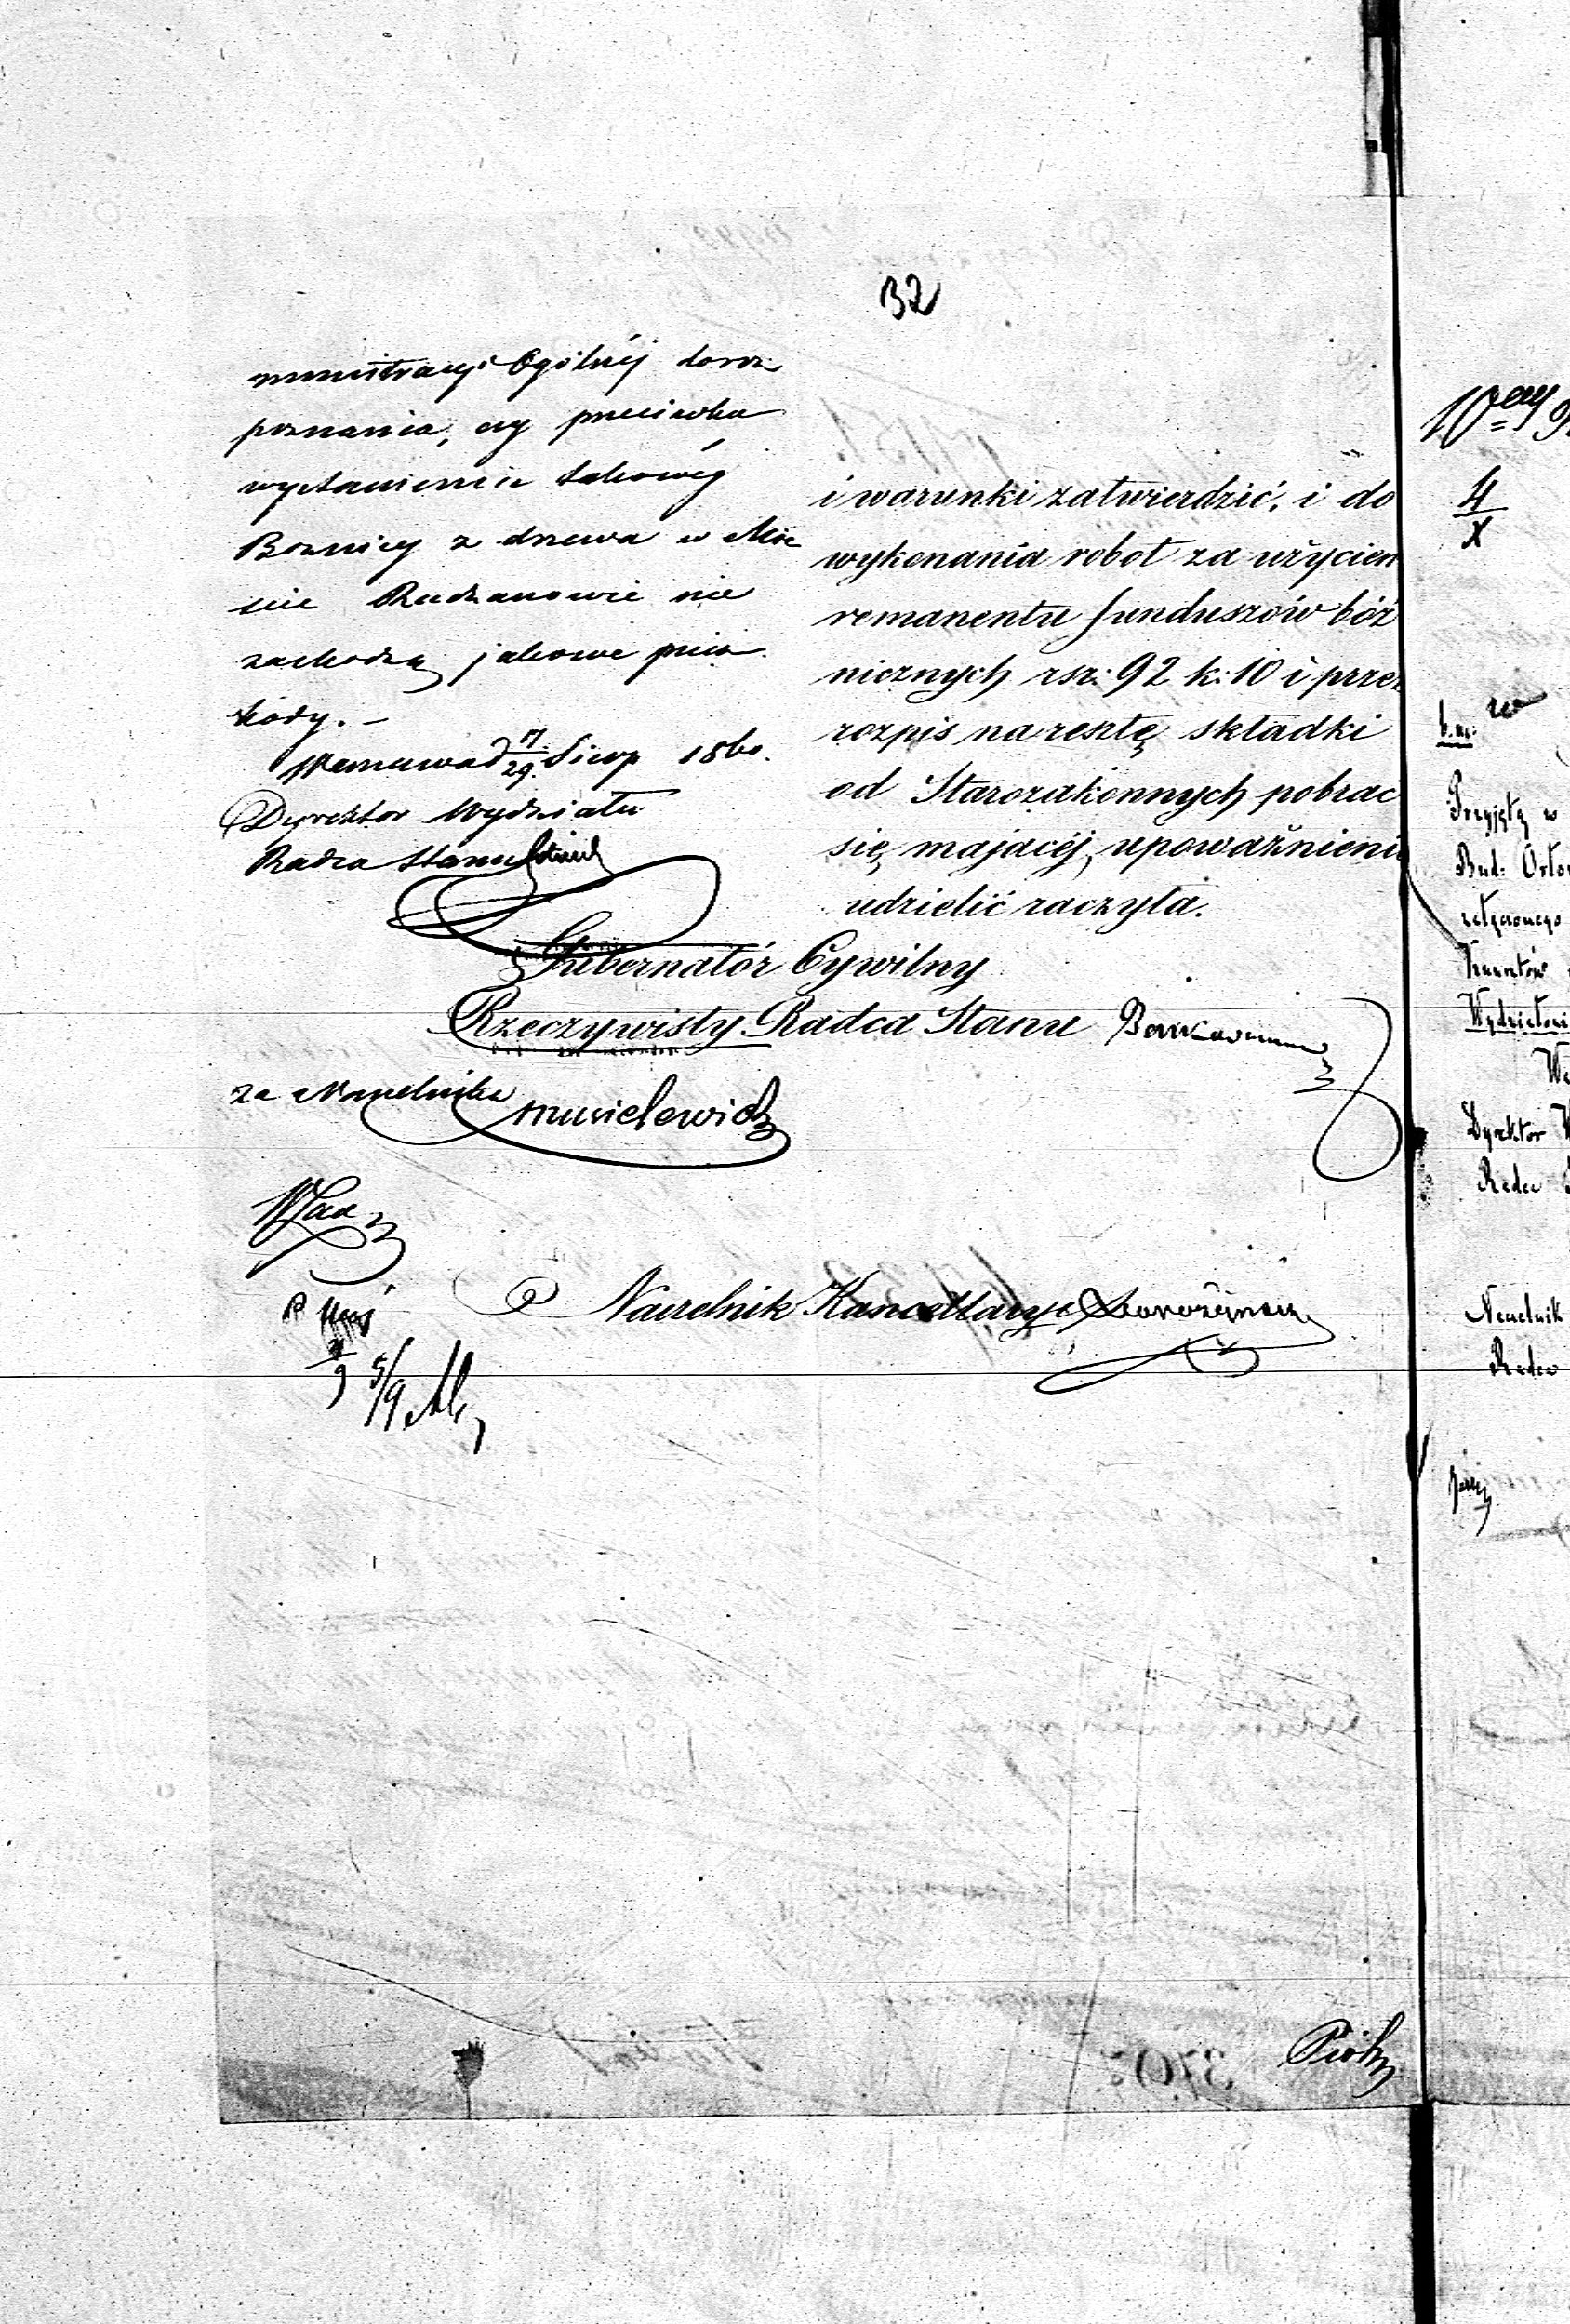 32
ministracyi Ogólnéj do roz
poznania, czy przeciwko
wystawieniu takowéj
Boznicy z drzewa w Mie
scie Radzanowie nie
zachodzą jakowe przesz
kody. –
Warszawa d 17/29 Sierp 1860.
Dyrektor Wydziału
Radca Stanu
i warunki zatwierdzić, i do
wykonania robot za użyciem
remanentu funduszów bóż
nicznych rsr: 92 k: 10 i przez
rozpis na resztę składki
od Starozakonnych pobrać
się mającéj, upoważnienie
udzielić raczyła.
Gubernatór Cywilny
Rzeczywisty Radca Stanu
za Naczelnika Musielewicz
Naczelnik Kancellaryi
5/9
Piotr
4/X
Przyjęty w
Bud:
Wydziałowi
Dyrektor
Radca
Naczelnik
Radca